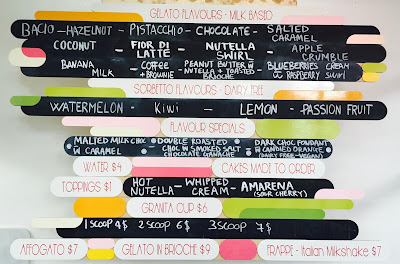 GELATO FLAVOURS - MILK BASED
BACIO-HAZELNUT - PISTACCHIO - CHOCOLATE - SALTED CARAMEL
COCONUT - FIOR DI LATTE - NUTELLA SWIRL - APPLE CRUMBLE
BANANA MILK - COFFEE + BROWNIE - PEANUT BUTTER W NUTELLA + TOASTED BRIOCHE - BLUEBERRIES CREAM W RASPBERRY SWIRL
SORBETTO FLAVOURS - DAIRY FREE
WATERMELON - KIWI - LEMON - PASSION FRUIT
FLAVOUR SPECIALS
MALTED MILK CHOC W CARAMEL
DOUBLE ROASTED CHOC W SMOKED SALT CHOCOLATE GANACHE
DARK CHOC FONDANT W CANDIED ORANGE (DAIRY FREE-VEGAN)
WATER $4
CAKES MADE TO ORDER
TOPPINGS $1
HOT NUTELLA - WHIPPED CREAM - AMARENA (SOUR CHERRY)
GRANITA CUP $6
1 SCOOP 4$ 2 SCOOP 6$ 3 SCOOP 7$
AFFOGATO $7
GELATO IN BRIOCHE $9
FRAPPE - Italian Milkshake $7